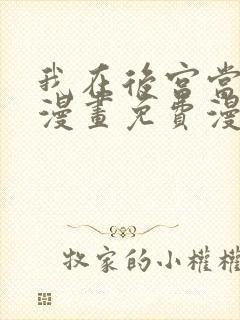 我在后宫当
漫畫免費漫
牧家的小權權